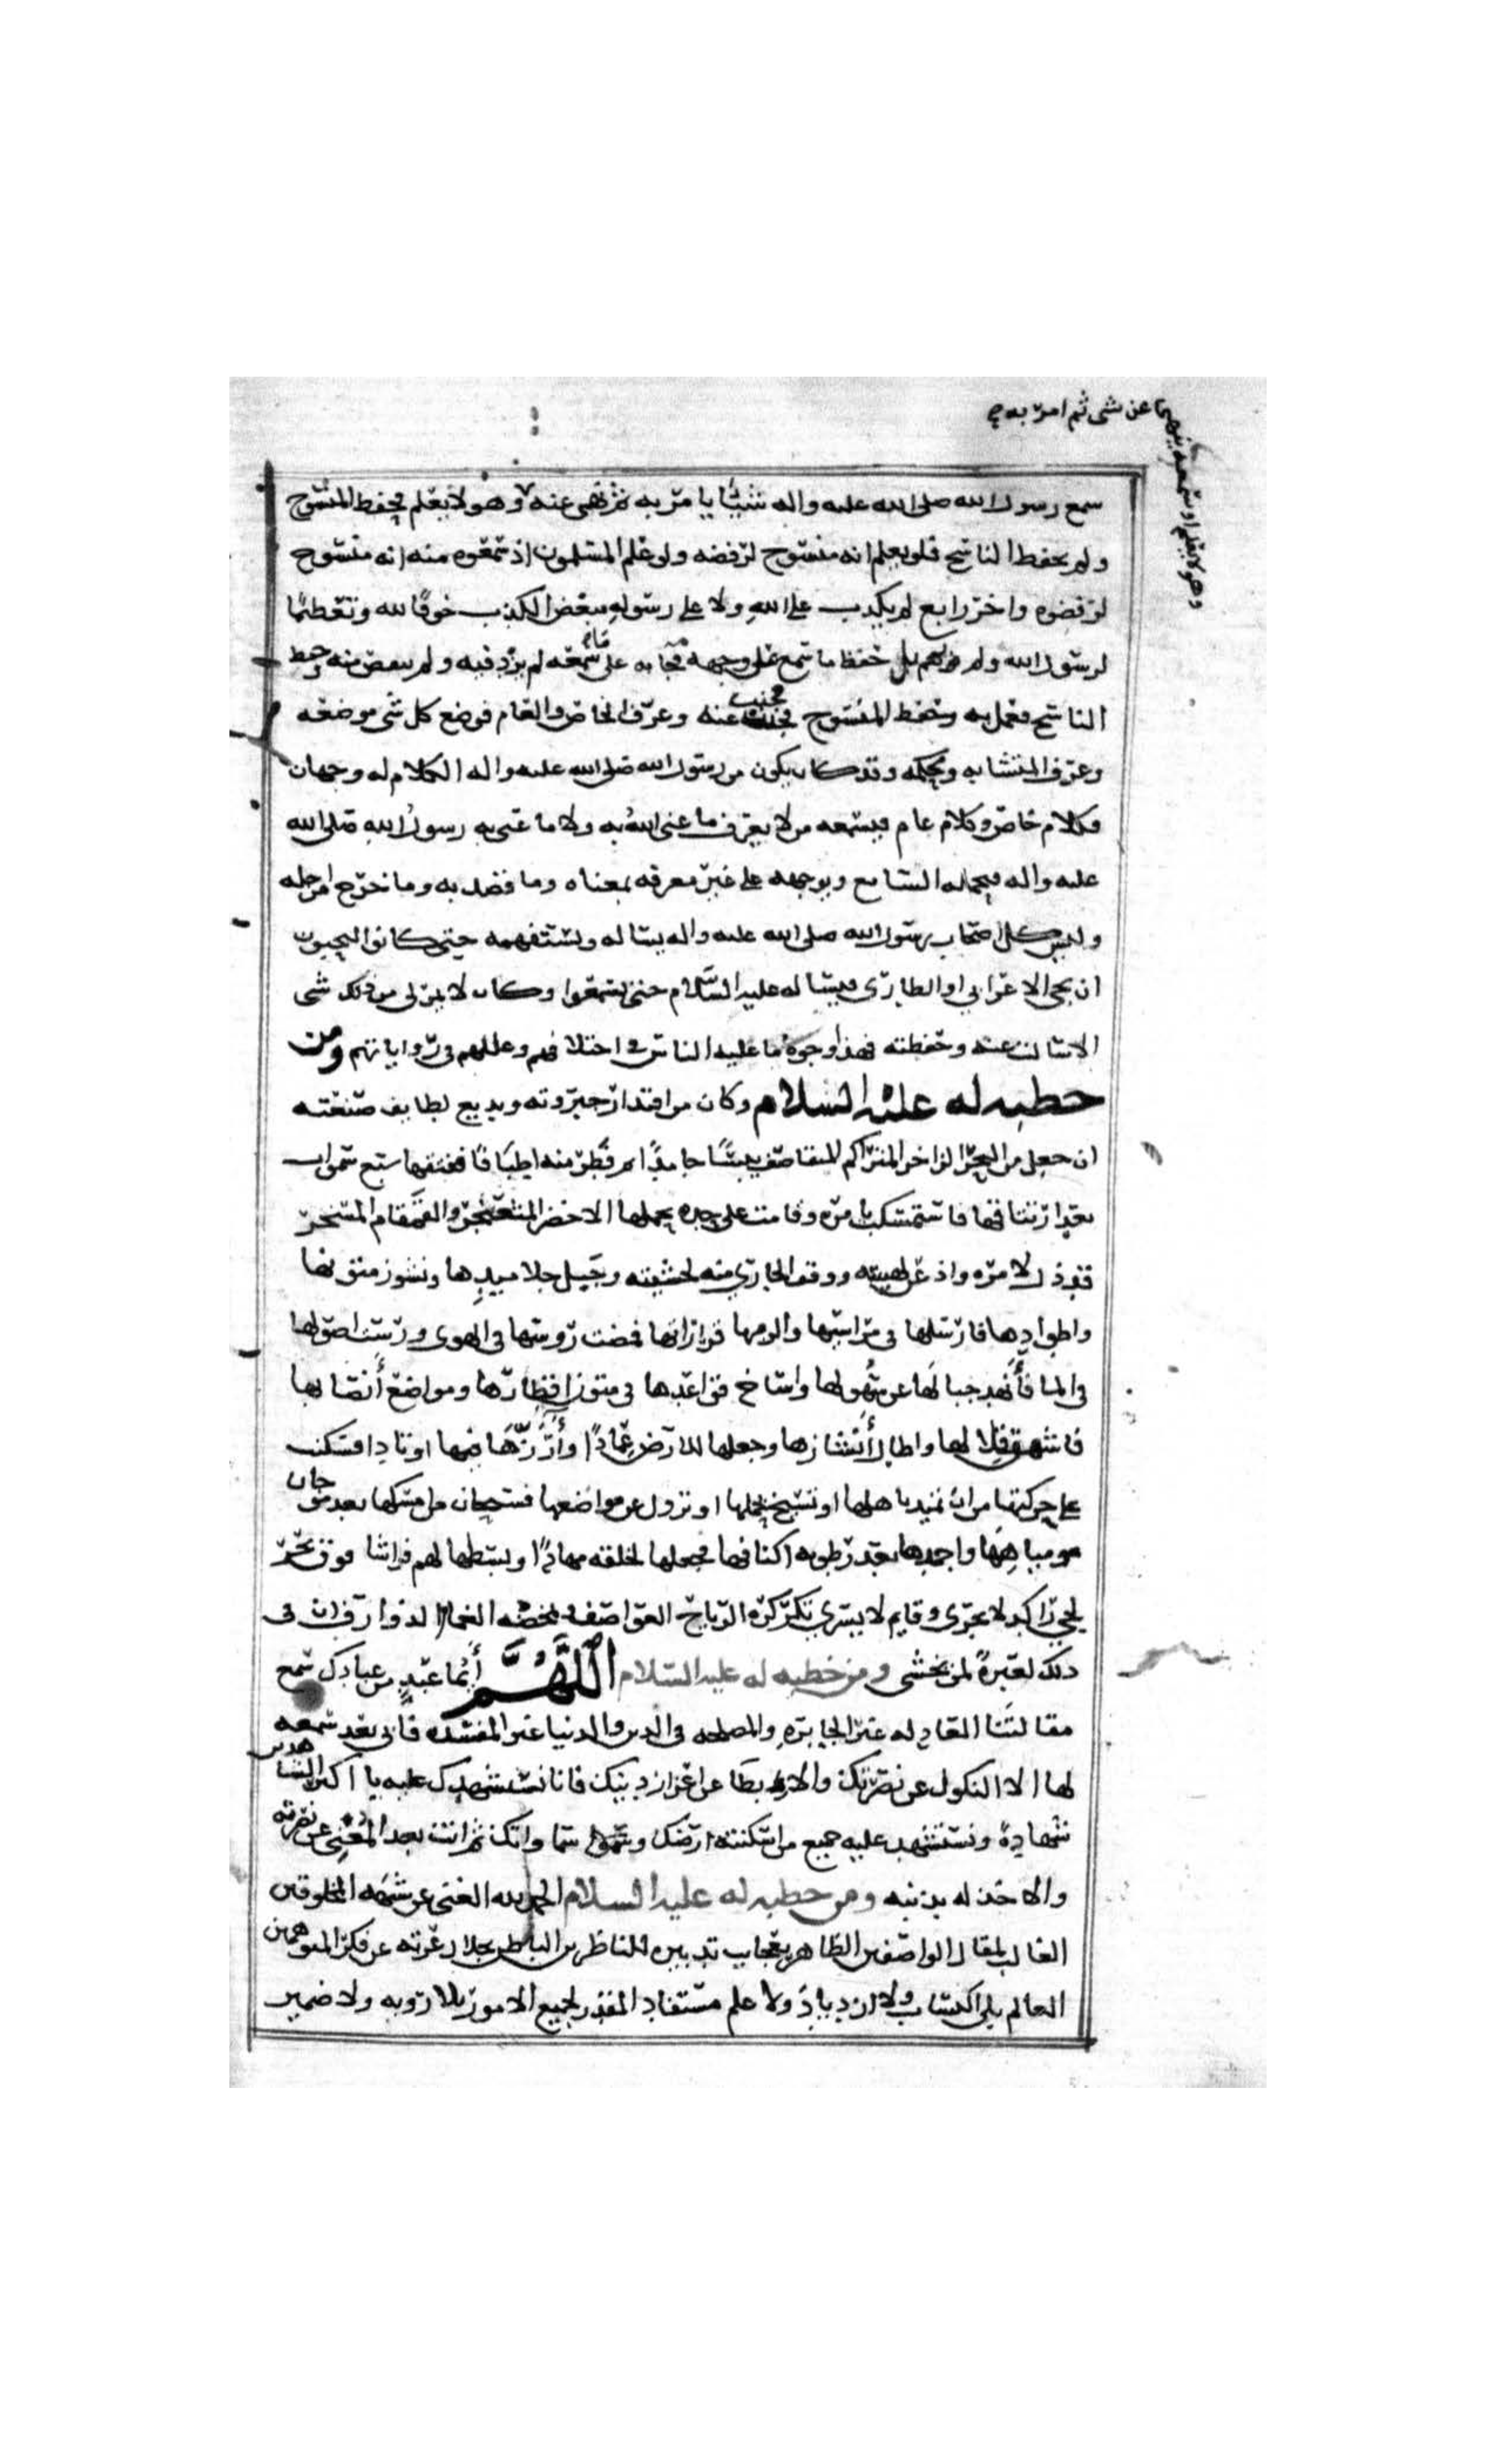 وهو لا يعلم او سمعه ينهى عن شى ثم امر به
سمع رسول الله صلى الله عليه واله شيئًا يامر به ثم نهى عنه وهو لا يعلم فحفظ المنسوخ
ولم يحفظ الناسخ فلو يعلم انه منسوخ لرفضه ولو علم المسلمون اذ سمعوه منه انه منسوخ
لرفضوه واخر رابع لم يكذب على الله ولا على رسوله مبغض للكذب خوفًا لله وتعظيمًا
لرسول الله ولم يهم بل حفظ ما سمع على وجهه فجا به على سمعه لم يزد فيه ولم ينقص منه وحفظ
الناسخ فعمل به وحفظ المنسوخ فجنب عنه وعرف الخاص والعام فوضع كل شى موضعه
وعرف المتشابه ومحكمه وقد كان يكون من رسول الله صلى الله عليه واله الكلام له وجهان
فكلام خاص وكلام عام فيسمعه من لا يعرف ما عنى الله به ولا ما عنى به رسول الله صلى الله
عليه واله فيحمله السامع ويوجهه على غير معرفه بمعناه وما قصد به وما خرج من اجله
وليس كل اصحاب رسول الله صلى الله عليه واله يساله ويستفهمه حتى كانوا ليحبون
ان يجى الاعرابي او الطارى فيساله عليه السلام حتى يسمعوا وكان لا يمر لى من ذلك شى
الا سالت عنه وحفظته فهذا وجوه ما عليه الناس في اختلافهم وعللهم في رواياتهم ومن
خطبه له عليه السلام وكان من اقتدار جبروته وبديع لطايف صنعته
ان جعل من البحر الزاخر المتراكم المتقاصف يبسًا جامدًا ثم فطر منه اطباقًا ففتقها سبع سموات
بعد ارتتاقها فاستمسكت بامره وقامت على حده يحملها الاخضر المثعنجر والقمقام المسخر
قد ذل لامره واذعن لهيبته ووقف الجاري منه لخشيته وجبل جلاميدها ونشوز متونها
واطوادها فارسلها في مراسيها والزمها قراراتها فمضت روسها في الهوى ورست اصولها
في الما فأنهد جبالها عن سهولها واساخ قواعدها في متون اقطارها ومواضع أنصابها
فاشهق قلالها واطال أنشازها وجعلها للارض عمادًا وأرزها فيها اوتادا فسكنت
على حركتها من ان تميد باهلها او تسيخ بحملها او تزول عن مواضعها فسبحان من امسكها بعد موجان
مياهها واجمدها بعد رطوبه اكنافها فجعلها لخلقه مهادًا وبسطها لهم فراشا فوق بحر
لجي راكد لا يجرى وقايم لا يسري تكركره الرياح العواصف وتمخضه الغمام الذوارف ان في
ذلك لعبرةً لمن يخشى ومن خطبه له عليه السلام اللَّهُمَّ أيما عبدٍ من عبادك سمع
مقالتنا العادله غير الجايره والمصلحه في الدين والدنيا غير المفسده فأبى بعد سمعه
لها الا النكول عن نصرتك والابطا عن اعزاز دينك فانا نستشهدك عليه يا اكبر الشاهدين
شهادةً ونستشهد عليه جميع من اسكنته ارضك وسمواتك ثم انت بعد المغني عن نصرته
والاخذ له بذنبه ومن خطبه له عليه السلام الحمد لله العلي عن شبه المخلوقين
الغالب لمقال الواصفين الظاهر بعجايب تدبيره للناظرين الباطن بجلال عزته عن فكر المتوهمين
العالم بلا اكتساب ولا ازدياد ولا علم مستفاد المقدر لجميع الامور بلا رويه ولا ضمير